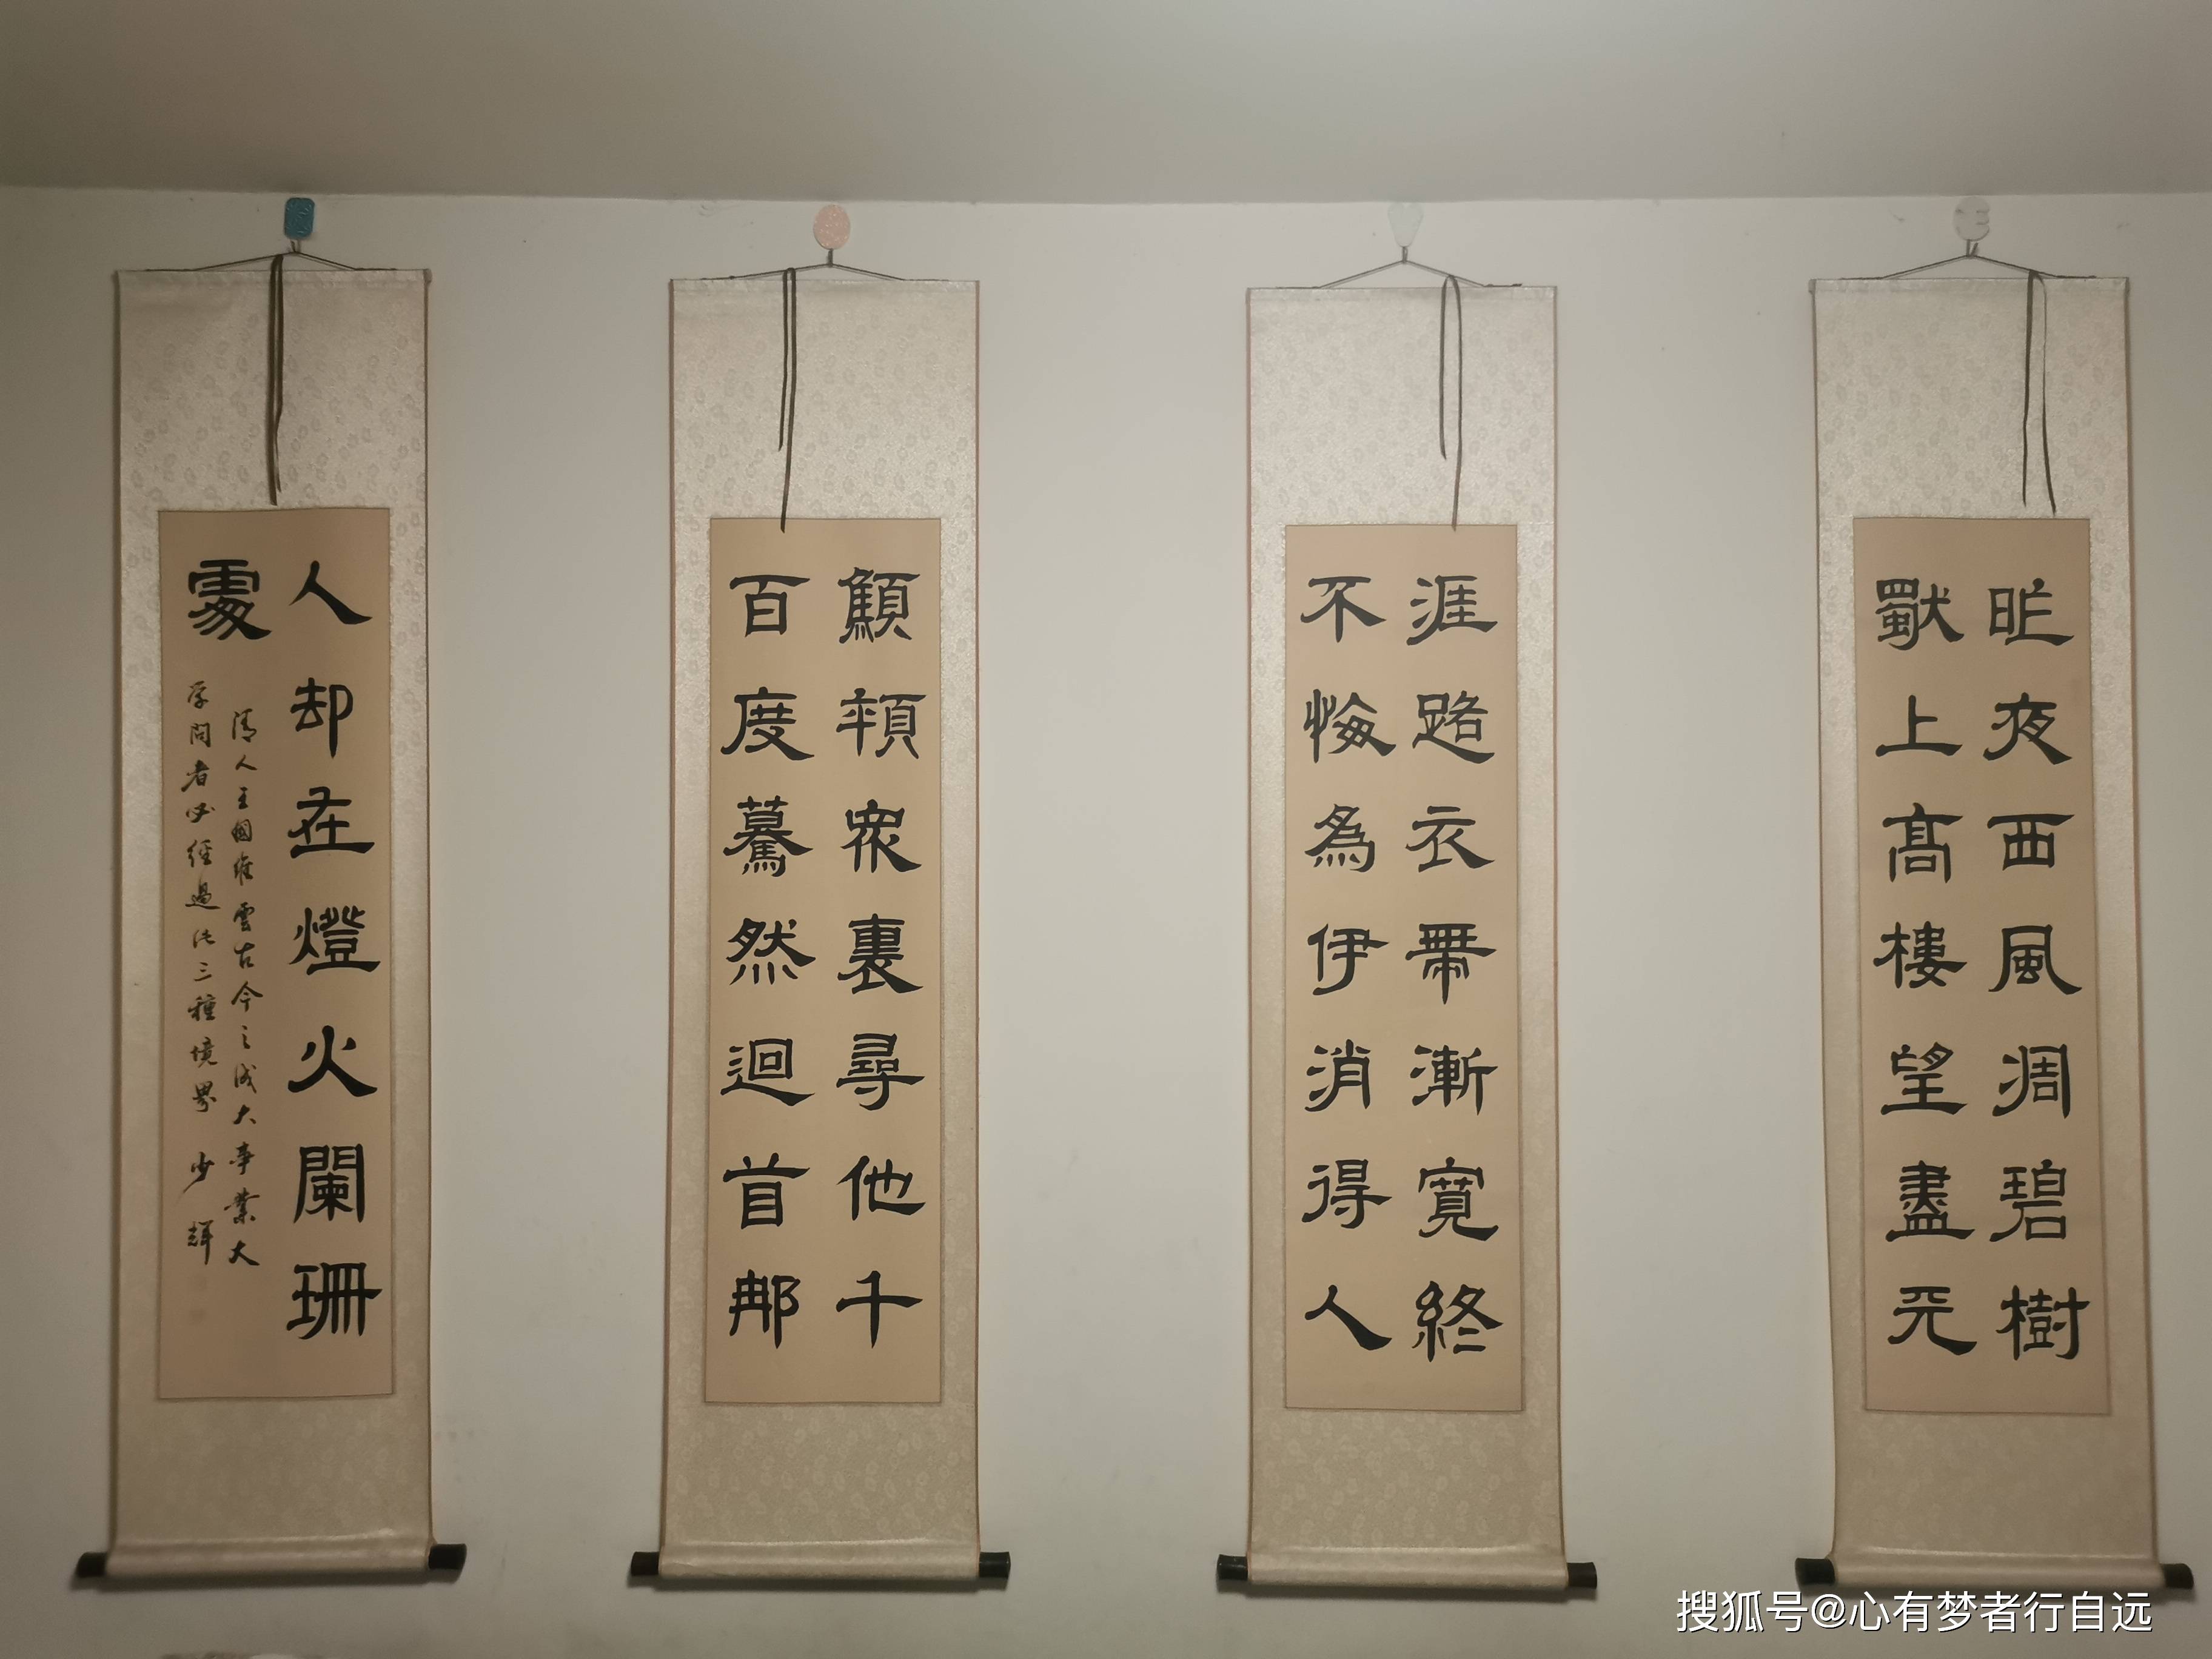 昨夜西風凋碧樹
獨上高樓望盡天
涯路衣帶漸寬終
不悔為伊消得人
顦顇眾裏尋他千
百度驀然迴首那
人却在燈火闌珊
處
清人王國維雲古今之成大事業大
學問者必經過此三種境界 少輝
搜狐号@心有梦者行自远